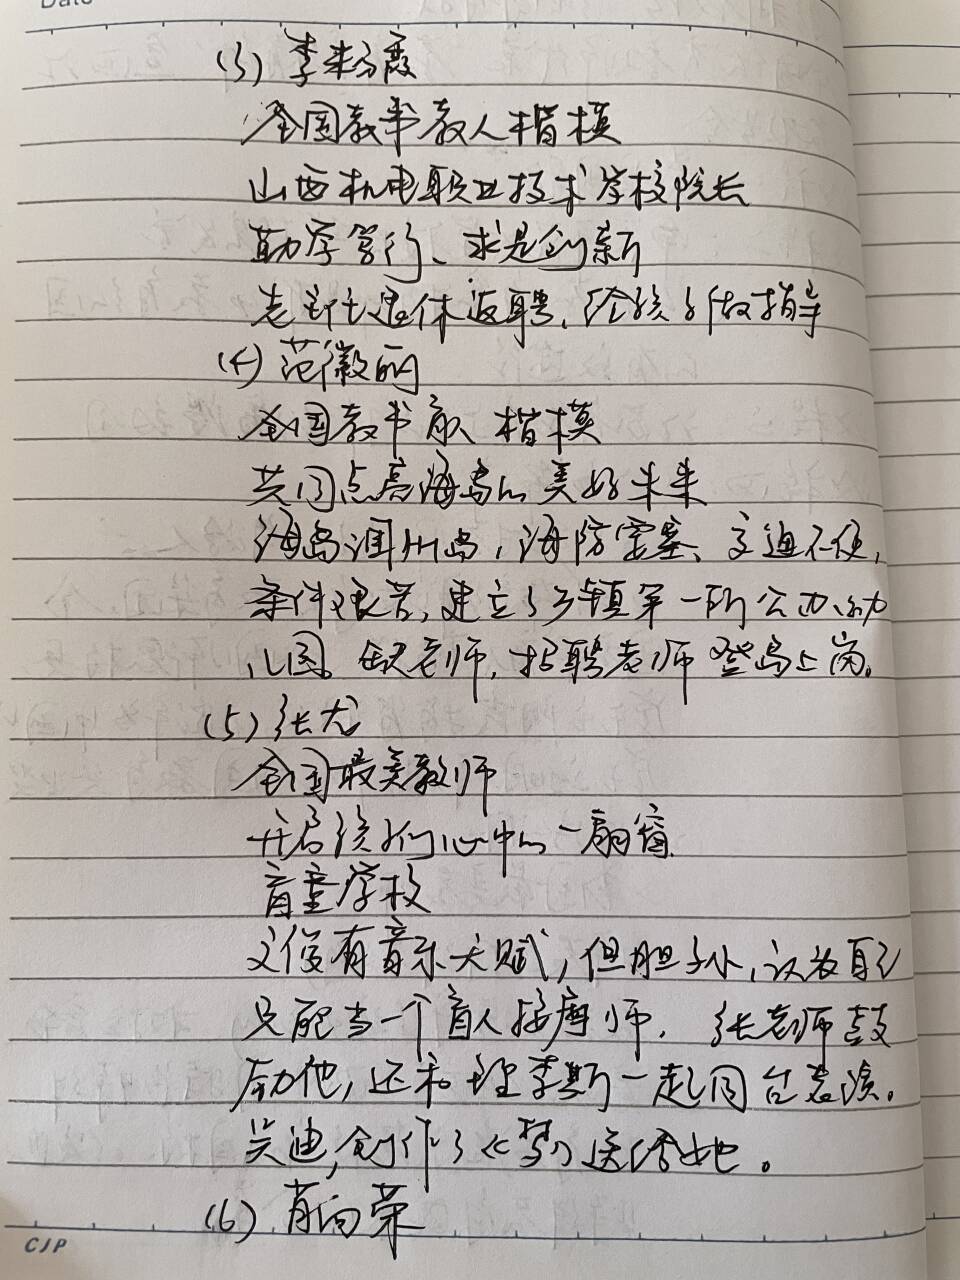 Date
(3) 李粉霞
全国教书教人楷模
山西机电职业技术学校院长
勤学笃行、求是创新
老主任退休返聘,给孩子做指导
(4) 范徽丽
全国教书育人 楷模
共同点亮海岛的美好未来
海岛涠州岛,海防要塞、交通不便,
条件艰苦,建立了乡镇第一所公办幼
儿园。缺老师,招聘老师登岛上岗。
(5) 张龙
全国最美教师
开启孩子们心中的一扇窗
盲童学校
文俊有音乐天赋,但胆子小,认为自己
只配当一个盲人按摩师. 张老师鼓
励他,还和理查斯一起同台表演。
吴迪,创作了《梦》送给她。
(6) 肖向荣
CJP